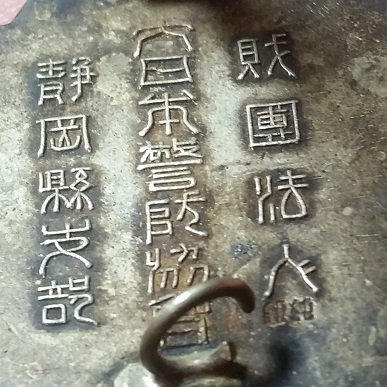 財團法人
大日本警防協會
靜岡縣支部